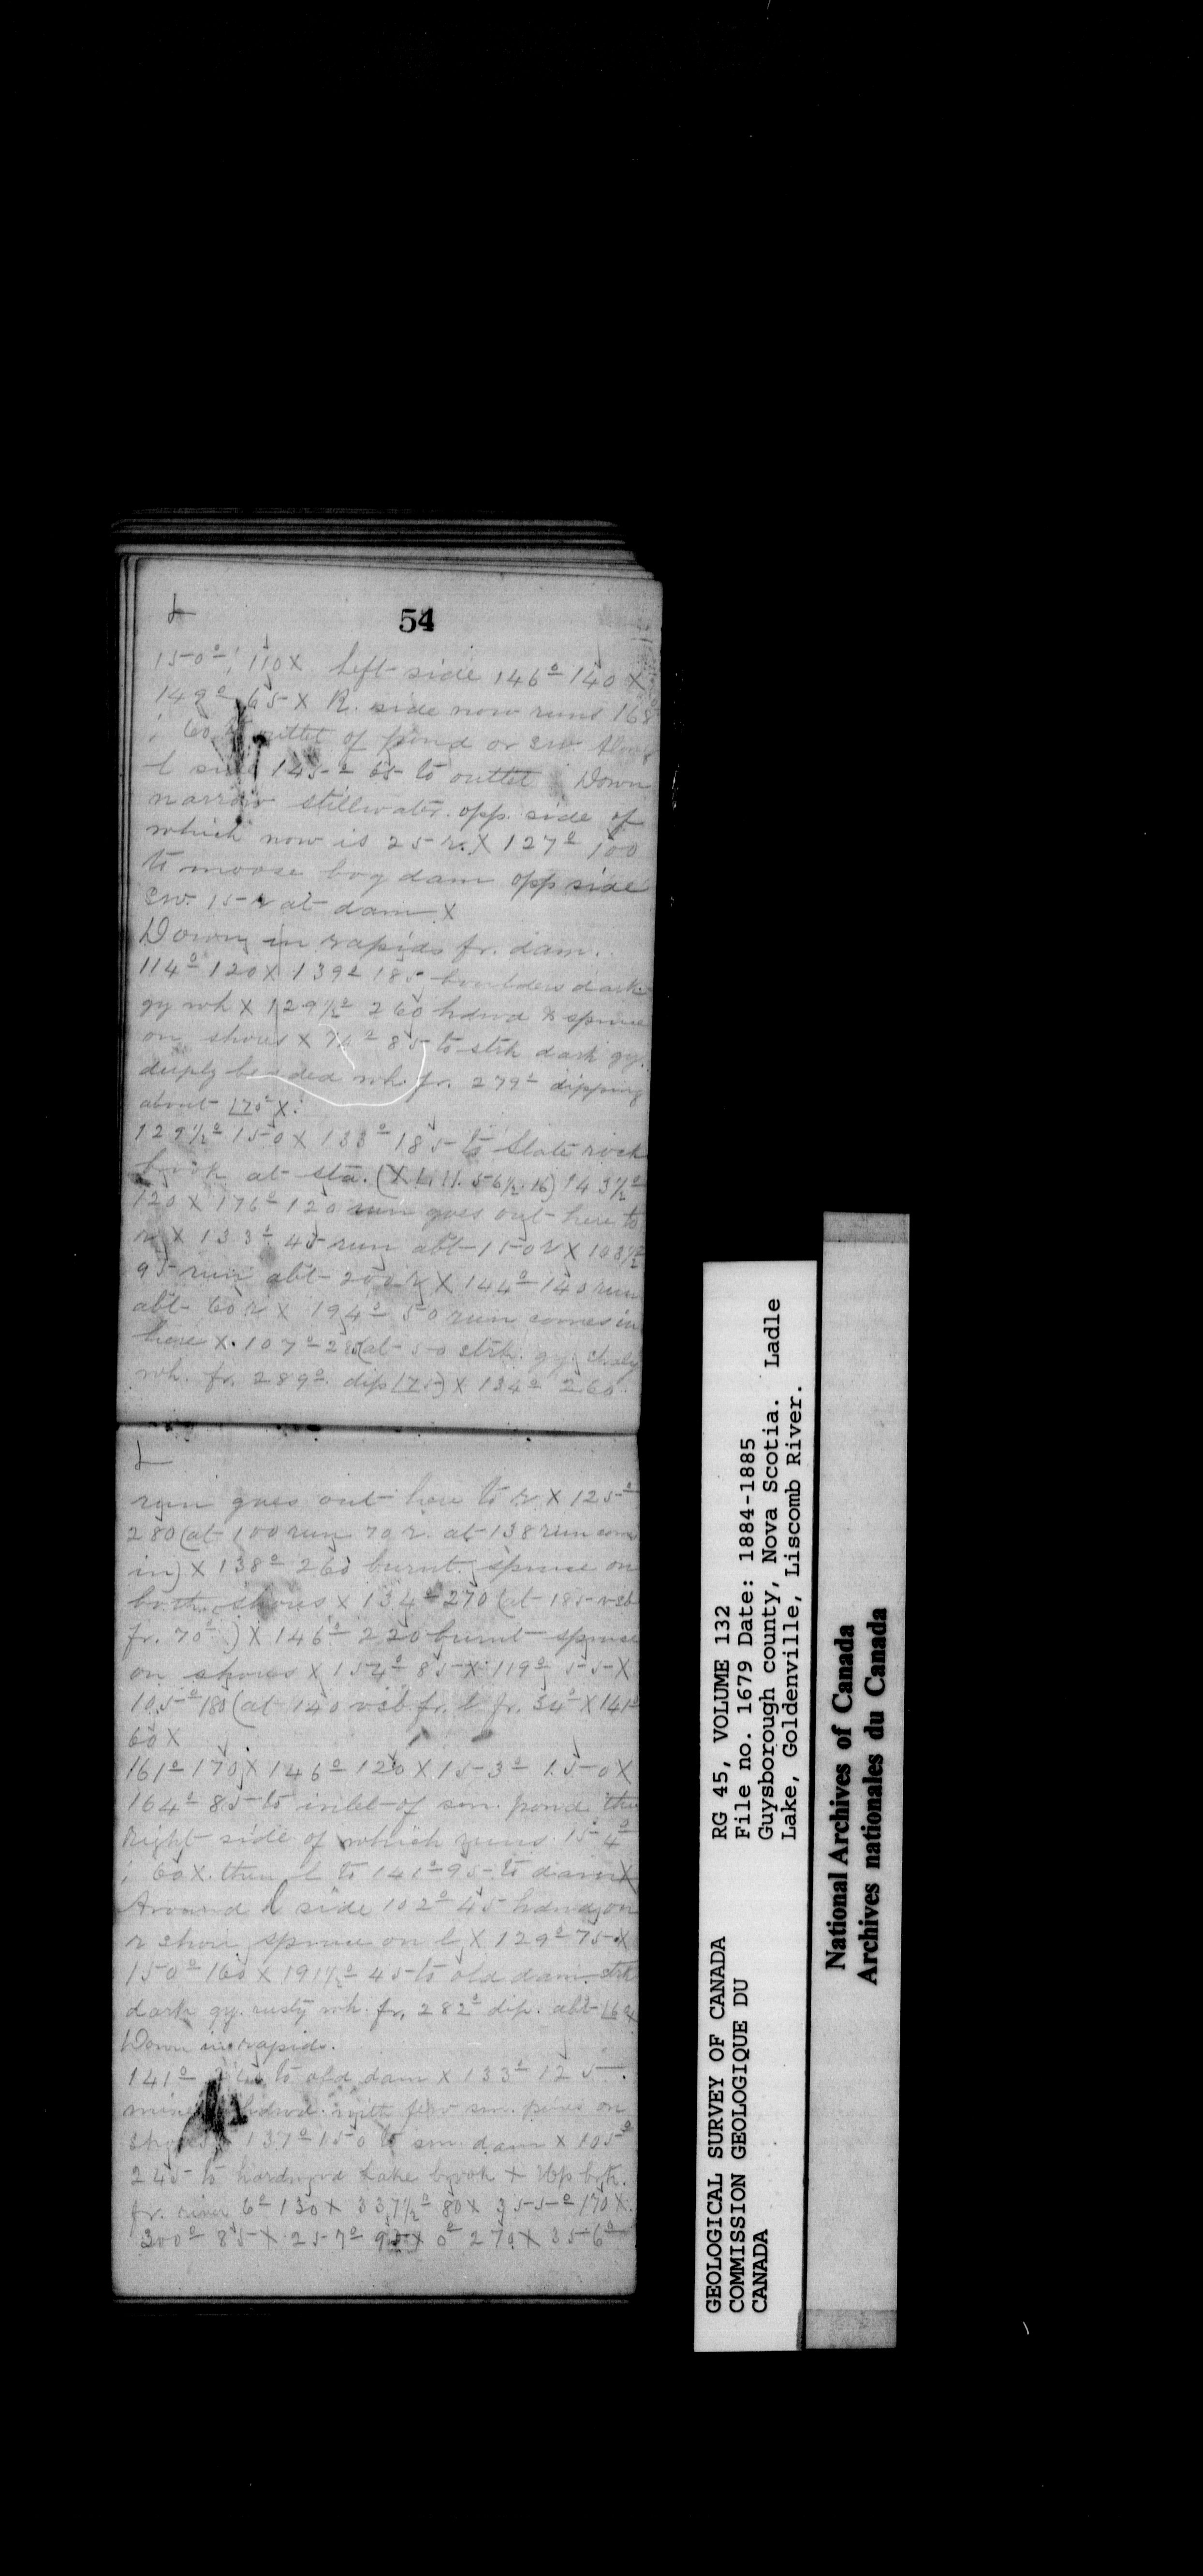 L
54
150° ; 110 X Left side 146° 140 X
149° 65 X R. side now runs 168
; 60 outlet of pond or sw. Along
l side 145° 65 to outlet Down
narrow stillwater. opp. side of
which now is 25 r. X 127° 100
to moose bog dam opp side
sw. 15 r at dam X
Down in rapids fr. dam.
114° 120 X 139° 185 boulders dark
gy wh X 129½° 260 hdwd & spruce
on shores X 85 to strk dark gy.
deeply beaded wh. fr. 279° dipping
about 75° X.
129½° 150 X 133° 185 to Slate rock
brook at sta. (X L. 11. 56½.16) 143½°
120 X 176° 120 run goes out here to
r X 133° 45 run abt 150 r X 103½
95 run abt 200 r X 144° 140 run
abt 60 r X 194° 50 run comes in
here X. 107° 285 (at 50 strk. gy.
wh. fr. 289°. dip 75) X 134° 260.
L
run goes out here to r. X 125°
280 (at 100 run 70 r. at 138 run com
in) X 138° 260 burnt spruce on
both shores X 134° 270 (at 185 vsb
fr. 70°.) X 146° 220 burnt spruce
on shores X 154° 85 X 119° 55 X
105° 180 (at 140 vsb fr. l fr. 34° X 141°
60 X
161° 170 X 146° 120 X 153° 150 X
164° 85 to inlet of sm. pond the
Right side of which runs 154°
; 60 X. then l to 141° 95 to dam X
Around l side 102° 45 hdwd on
r shore spruce on l X 129° 75 X
150° 160 X 191½° 45 to old dam strk
dark gy. rusty wh. fr. 282° dip. abt
Down in rapids.
141° to old dam X 133° 125.
hdwd. with few sm. pines on
137° 150 to sm. dam X 105°
245 to hardwood Lake brook X Up brk.
fr. river 6° 130 X 337½° 80 X 355° 170 X.
300° 85 X 257° 95 X 0° 270 X 356°
GEOLOGICAL SURVEY OF CANADA
COMMISSION GEOLOGIQUE DU
CANADA
RG 45, VOLUME 132
File no. 1679 Date: 1884-1885
Guysborough county, Nova Scotia. Ladle
Lake, Goldenville, Liscomb River.
National Archives of Canada
Archives nationales du Canada